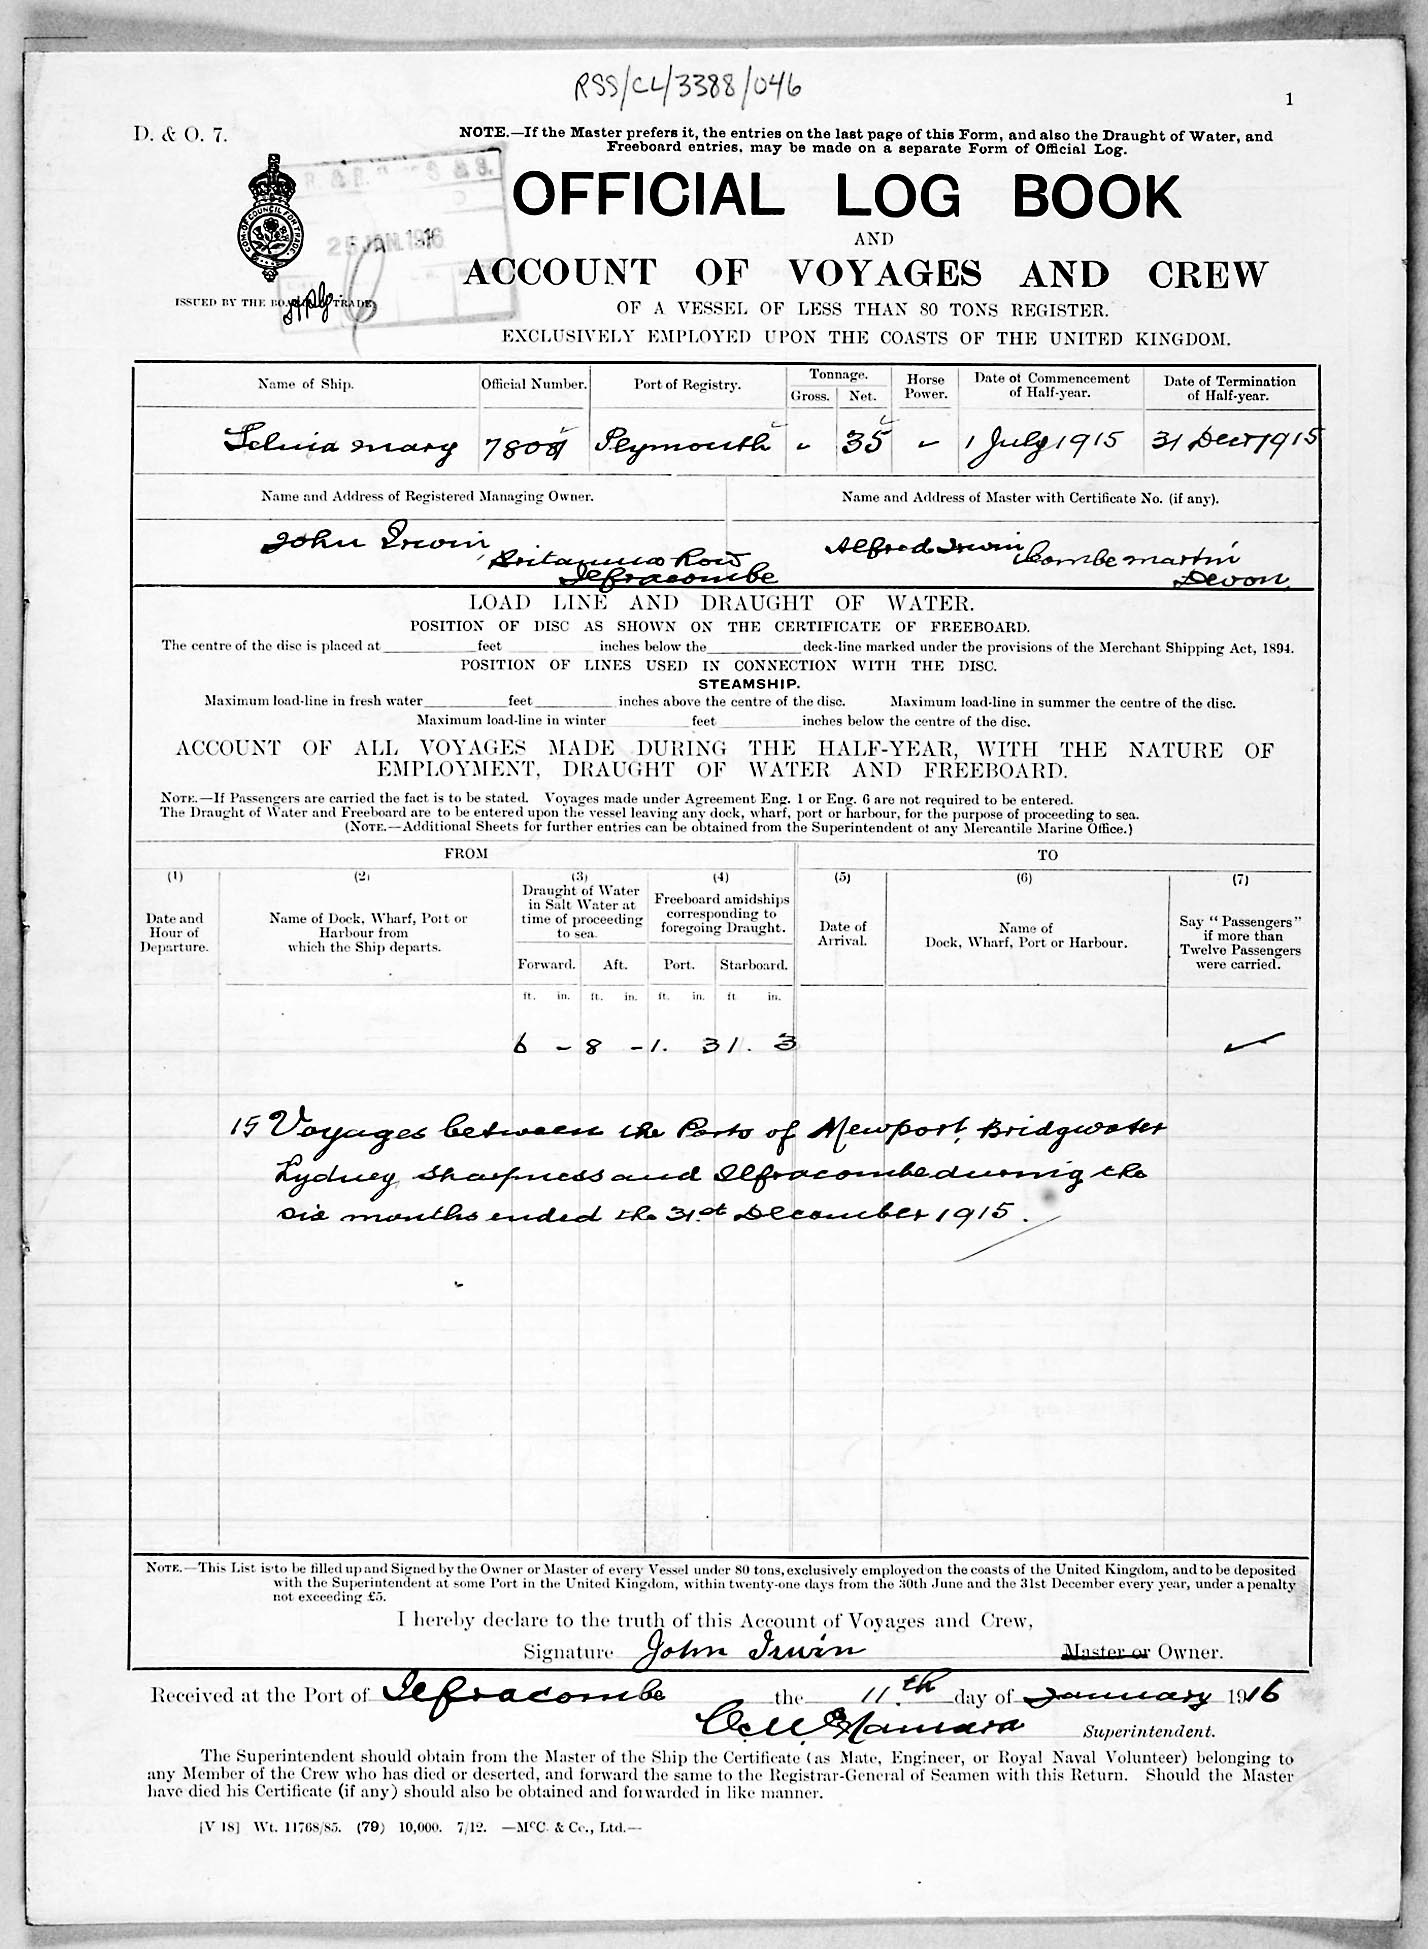 RSS/CL/3388/046
1
D. & O. 7.
NOTE.—If the Master prefers it, the entries on the last page of this Form, and also the Draught of Water, and
Freeboard entries, may be made on a separate Form of Official Log.
25 JAN. 1916
OFFICIAL LOG BOOK
AND
ACCOUNT OF VOYAGES AND CREW
ISSUED BY THE BOARD OF TRADE
OF A VESSEL OF LESS THAN 80 TONS REGISTER.
EXCLUSIVELY EMPLOYED UPON THE COASTS OF THE UNITED KINGDOM.
Name of Ship. Official Number. Port of Registry. Tonnage. Gross. Net. Horse Power. Date of Commencement of Half-year. Date of Termination of Half-year.
Mary Plymouth " 35 " 1 July 1915 31 Decr 1915
Name and Address of Registered Managing Owner. Name and Address of Master with Certificate No. (if any).
John Irwin, Row Ilfracombe Alfred Irwin Combe martin Devon
LOAD LINE AND DRAUGHT OF WATER.
POSITION OF DISC AS SHOWN ON THE CERTIFICATE OF FREEBOARD.
The centre of the disc is placed at feet inches below the deck-line marked under the provisions of the Merchant Shipping Act, 1894.
POSITION OF LINES USED IN CONNECTION WITH THE DISC.
STEAMSHIP.
Maximum load-line in fresh water feet inches above the centre of the disc. Maximum load-line in summer the centre of the disc.
Maximum load-line in winter feet inches below the centre of the disc.
ACCOUNT OF ALL VOYAGES MADE DURING THE HALF-YEAR, WITH THE NATURE OF
EMPLOYMENT, DRAUGHT OF WATER AND FREEBOARD.
NOTE.—If Passengers are carried the fact is to be stated. Voyages made under Agreement Eng. 1 or Eng. 6 are not required to be entered.
The Draught of Water and Freeboard are to be entered upon the vessel leaving any dock, wharf, port or harbour, for the purpose of proceeding to sea.
(NOTE.—Additional Sheets for further entries can be obtained from the Superintendent of any Mercantile Marine Office.)
FROM TO
(1) (2) (3) (4) (5) (6) (7)
Date and Hour of Departure.
Name of Dock, Wharf, Port or Harbour from which the Ship departs.
Draught of Water in Salt Water at time of proceeding to sea.
Freeboard amidships corresponding to foregoing Draught.
Date of Arrival.
Name of Dock, Wharf, Port or Harbour.
Say "Passengers" if more than Twelve Passengers were carried.
Forward. Aft. Port. Starboard.
ft. in. ft. in. ft. in. ft in.
6 - 8 - 1. 3 1. 3
15 Voyages between the Ports of Newport, Bridgwater
Lydney Sharpness and Ilfracombe during the
six months ended the 31st December 1915.
NOTE.—This List is to be filled up and Signed by the Owner or Master of every Vessel under 80 tons, exclusively employed on the coasts of the United Kingdom, and to be deposited
with the Superintendent at some Port in the United Kingdom, within twenty-one days from the 30th June and the 31st December every year, under a penalty
not exceeding £5.
I hereby declare to the truth of this Account of Voyages and Crew,
Signature John Irwin Master or Owner.
Received at the Port of Ilfracombe the 11th day of January 1916
Superintendent.
The Superintendent should obtain from the Master of the Ship the Certificate (as Mate, Engineer, or Royal Naval Volunteer) belonging to
any Member of the Crew who has died or deserted, and forward the same to the Registrar-General of Seamen with this Return. Should the Master
have died his Certificate (if any) should also be obtained and forwarded in like manner.
[V 18] Wt. 11768/85. (79) 10,000. 7/12. —McC. & Co., Ltd.—